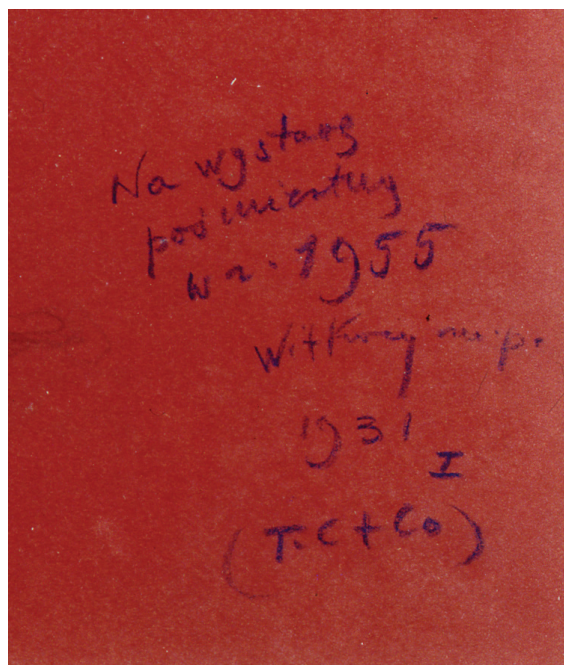 Na wystawę
pośmiertną
w r. 1955
Witkacy m.p.
1931
I
(T.C+Co)